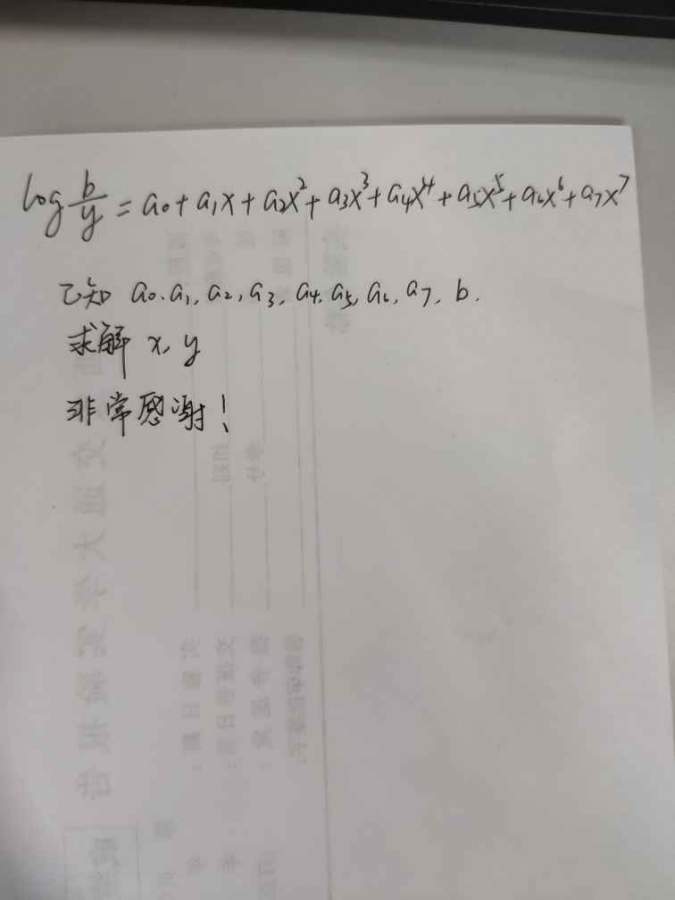 log b/y = a₀ + a₁x + a₂x² + a₃x³ + a₄x⁴ + a₅x⁵ + a₆x⁶ + a₇x⁷
已知 a₀. a₁, a₂, a₃, a₄, a₅, a₆, a₇, b.
求解 x, y
非常感谢!